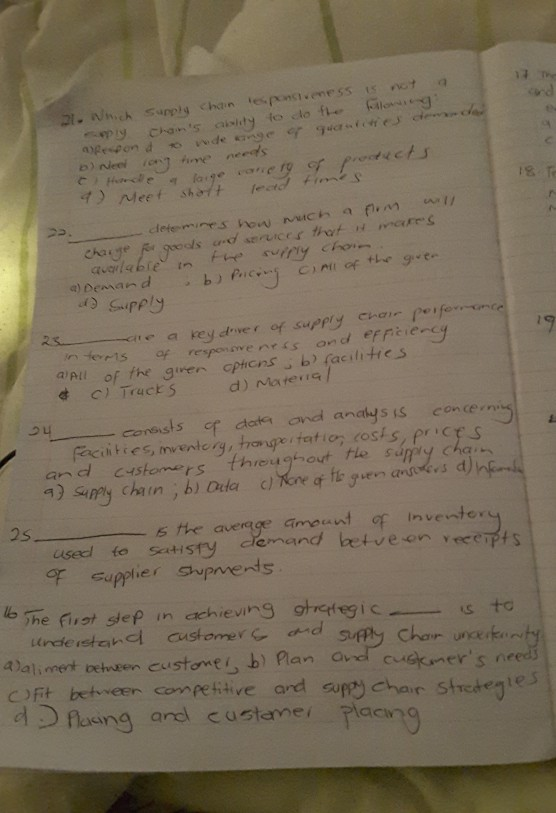 21. Which supply chain responsiveness is not a
supply chain's ability to do the following:
a) Respond to wide range of quantities demanded
b) Need long time needs
c) Handle a large variety of products
d) Meet short lead times
22. ______ determines how much a firm will
charge for goods and services that it makes
available in the supply chain.
a) Demand b) Pricing c) All of the given
d) Supply
23 ______ are a key driver of supply chain performance
in terms of responsiveness and efficiency
a) All of the given options; b) facilities
c) Trucks d) Material
24 ______ consists of data and analysis concerning
facilities, inventory, transportation, costs, prices
and customers throughout the supply chain
a) supply chain; b) Data c) None of the given answers d)
25. ______ is the average amount of inventory
used to satisfy demand between receipts
of supplier shipments.
16 The first step in achieving strategic ______ is to
understand customers and supply Chain uncertainty
a) aliment between customers, b) Plan and customer's needs
c) Fit between competitive and supply chair strategies
d :) Placing and customer placing
17
and
a
c
18
19